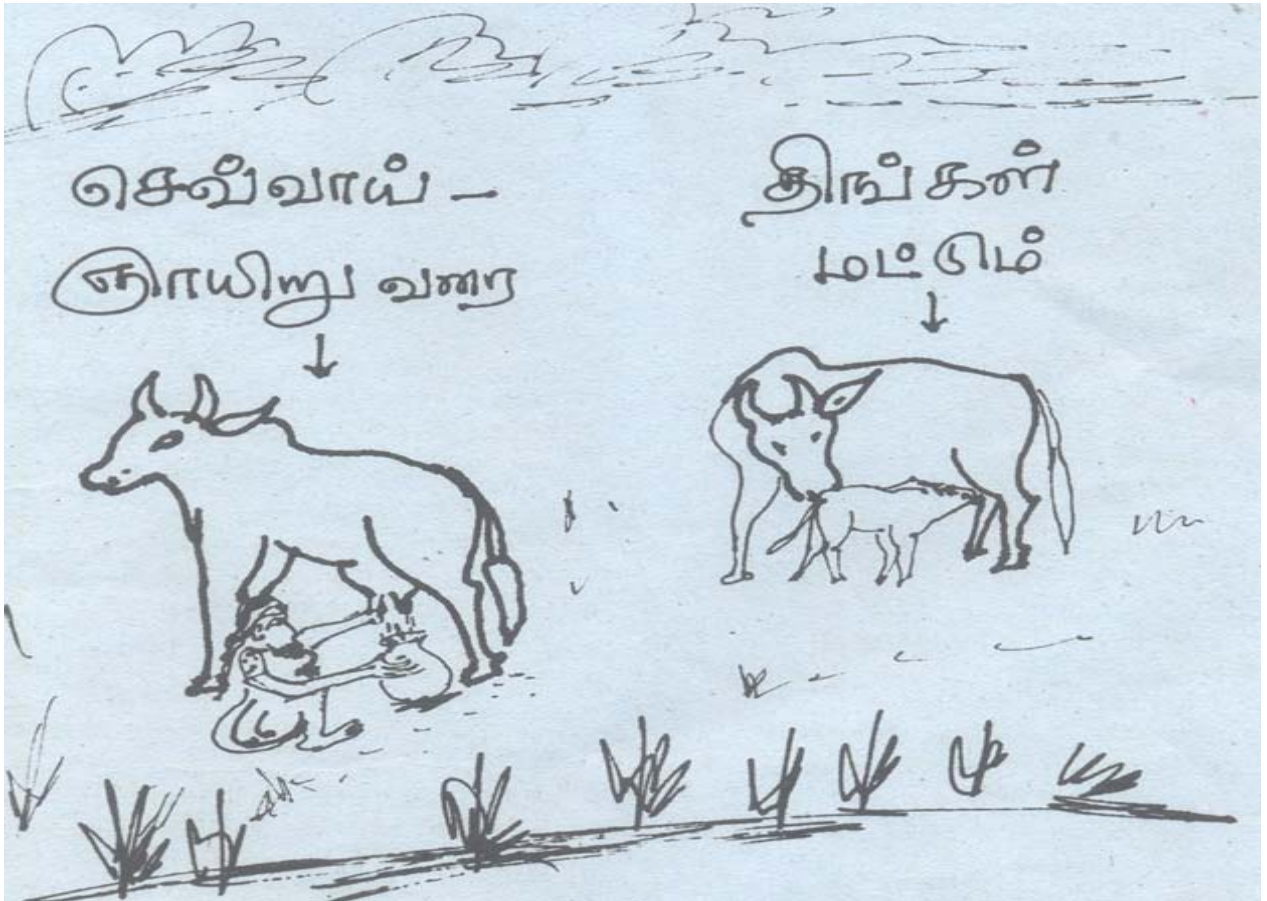 செவ்வாய் -
ஞாயிறு வரை
திங்கள்
மட்டும்